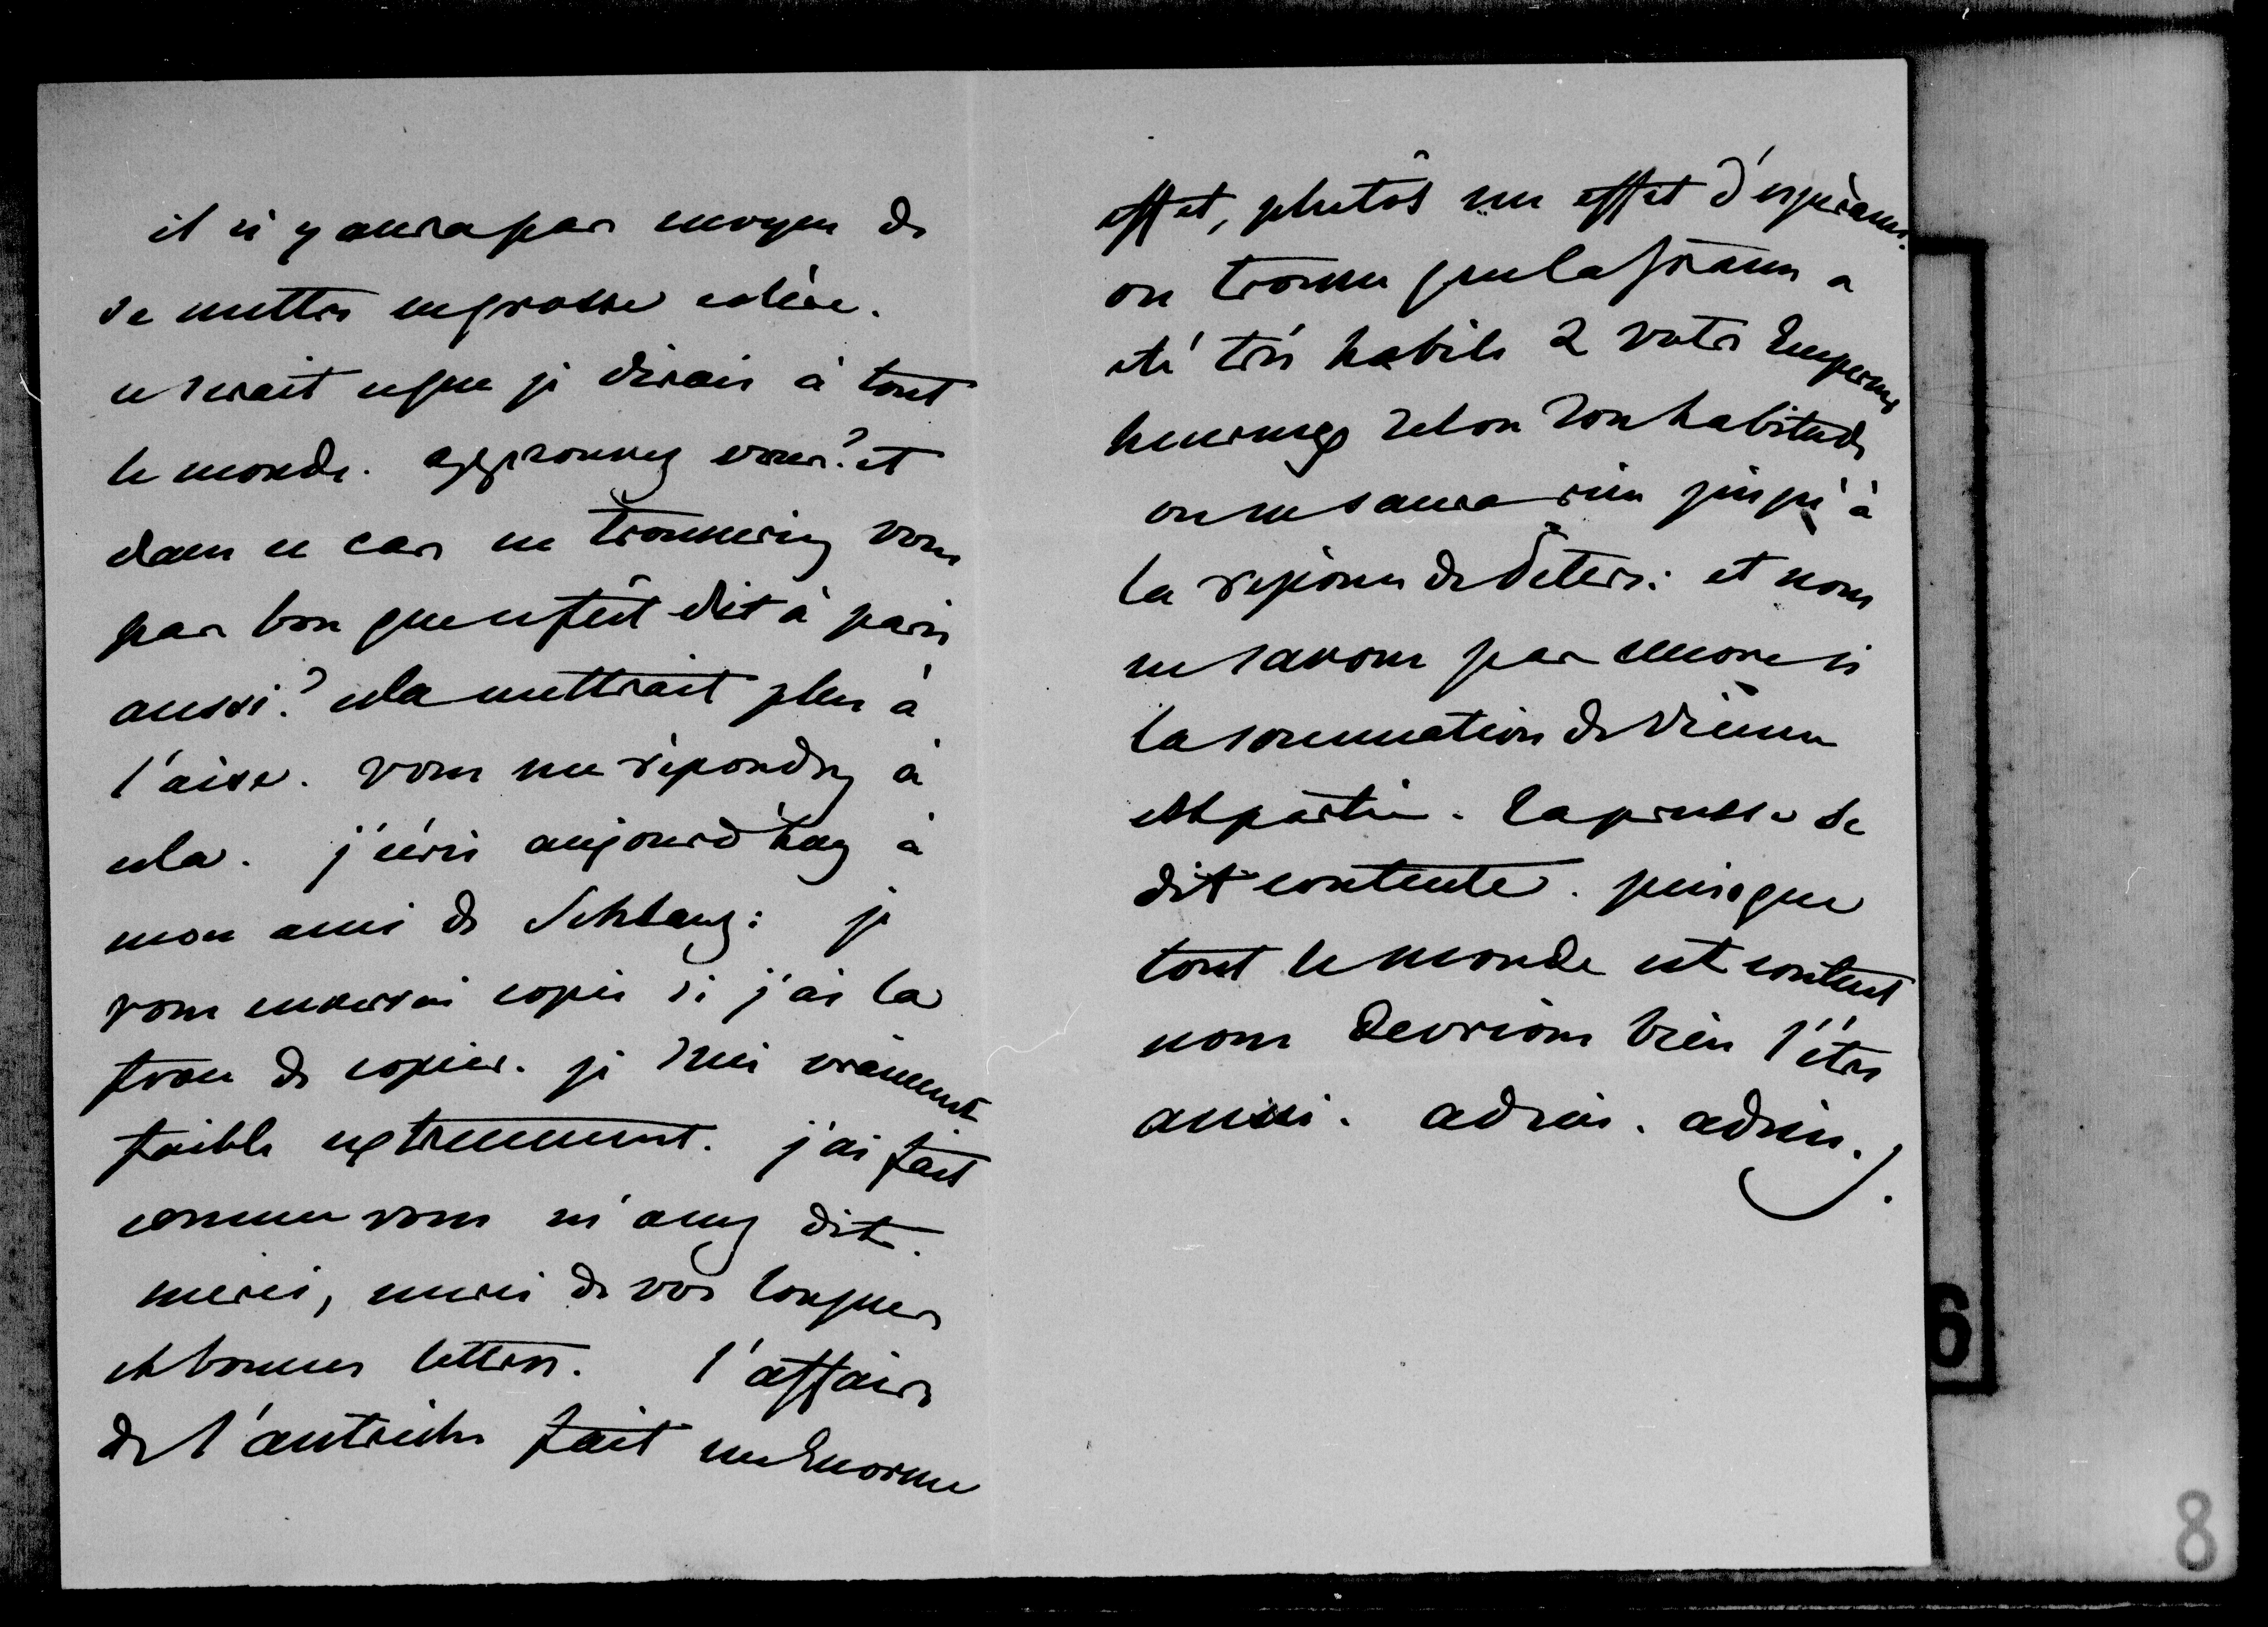 il n'y aura pas moyen de
se mettre en grosse colère.
ce serait ce que je dirais à tout
le monde. approuvez vous? et
dans ce cas ne trouveriez vous
pas bon que ce fût dit à paris
aussi? cela mettrait plus à
l'aise. vous me répondrez à
cela. j'écris aujourd'huy à
mon ami de Schlang: je
vous enverrai copie si j'ai la
force de copier. je suis vraiment
faible extremement. j'ai fait
comme vous m'avez dit.
merci, merci de vos longues
et bonnes lettres. l'affaire
de l'autriche fait un Enorme
effet, plutôt un effet d'espérance.
on trouve que la france a
été très habile & votre Empereur
heureux selon son habitude
on ne saura rien jusqu'à
la réponse de Peters: et nous
ne savons pas encore si
la sommation de Vienne
est partie. la prusse se
dit contente. puisque
tout le monde est content
nous devrions bien l'être
aussi. adieu. adieu.
6
8